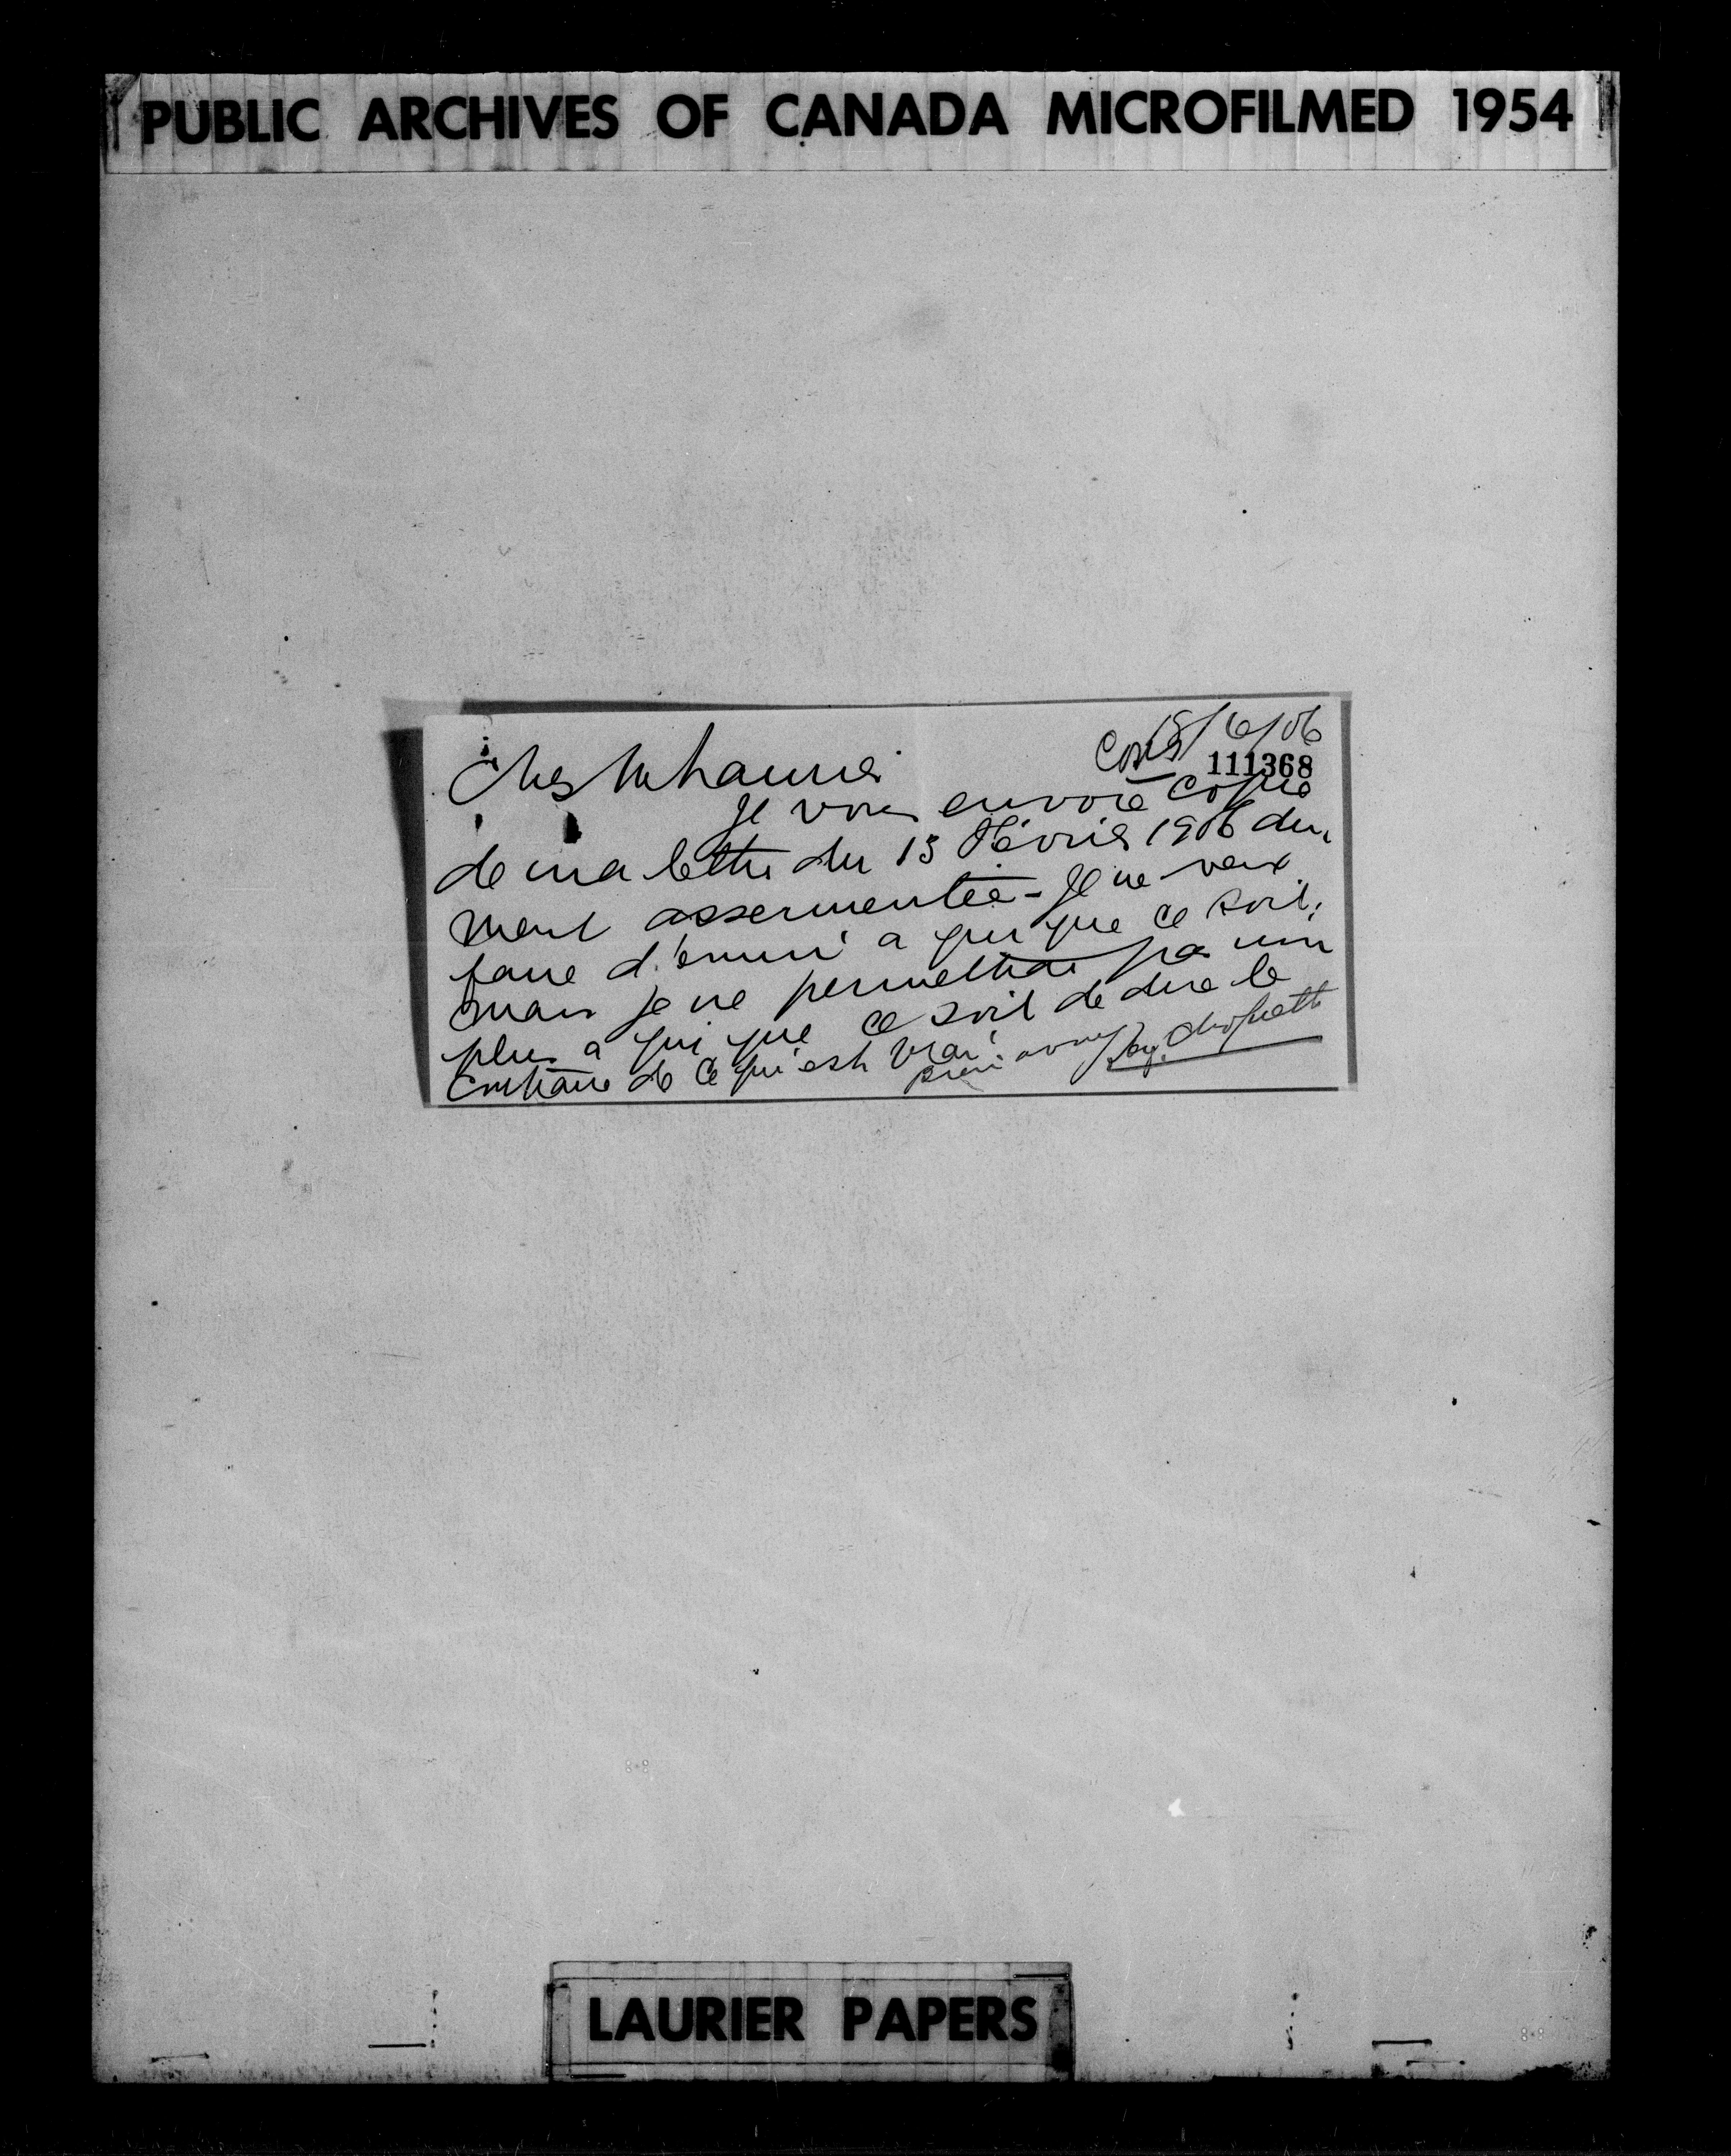 PUBLIC ARCHIVES OF CANADA MICROFILMED 1954
15/6/06
111368
Cher Mr Laurier
Je vous envoie copie
de ma lettre du 13 Février 1906 du
ment assermentée - Je ne veux
faire d'ennui à qui que ce soit;
mais je ne permettrai pas non
plus à qui que ce soit de dire le
contraire de ce qui est vrai.
Choquette
LAURIER PAPERS